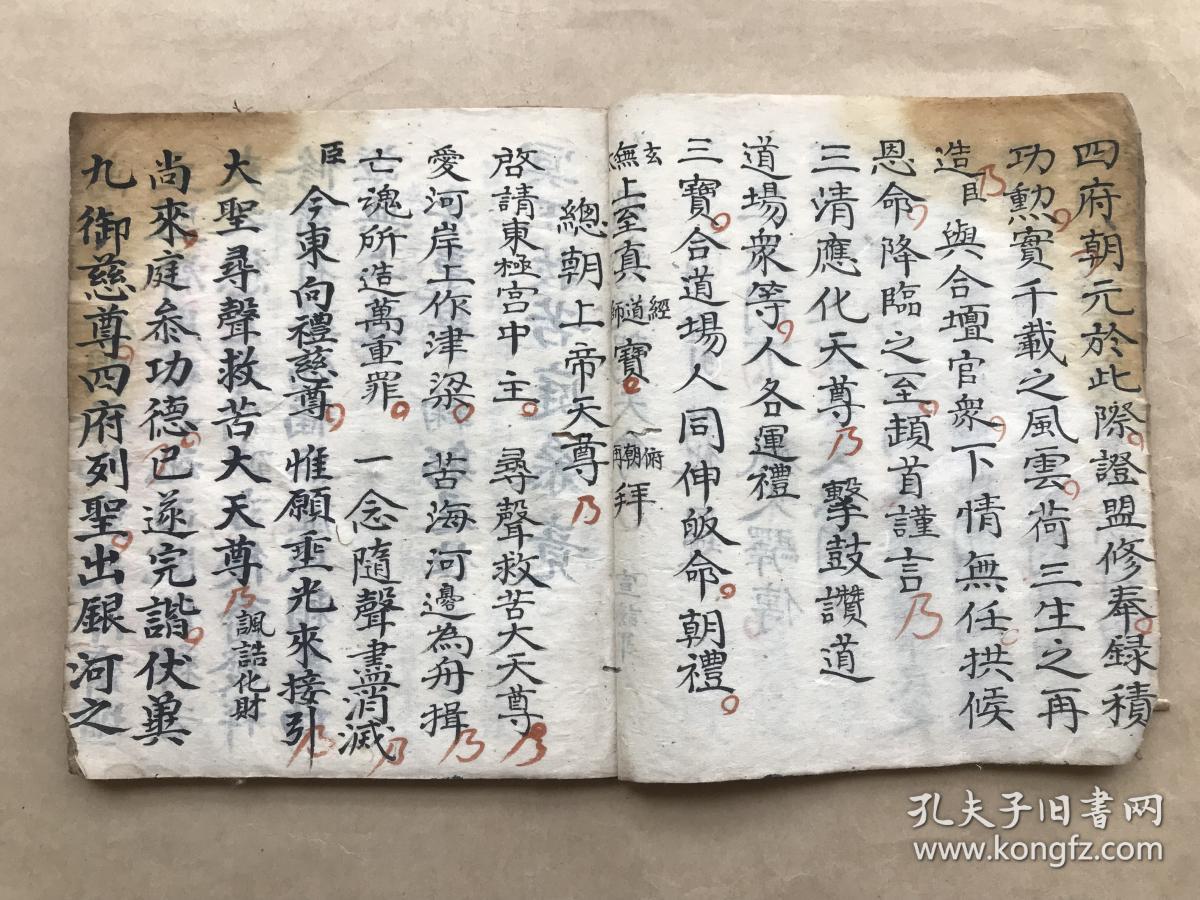 四府朝元於此際證盟修奉録積
功勲實千載之風雲荷三生之再
造臣與合壇官衆下情無任拱候
恩命降臨之至頫首謹言乃
三清應化天尊乃 擊鼓讚道
道場衆等人各運禮
三寶合道場人同伸皈命朝禮
玄無上至真 經道師寶 俯朝再拜
總朝上帝天尊乃
啓請東極宮中主 尋聲救苦大天尊乃
愛河岸上作津梁 苦海河邊為舟揖乃
亡魂所造萬重罪 一念隨聲盡消滅乃
臣今東向禮慈尊 惟願垂光來接引乃
大聖尋聲救苦大天尊乃 諷誥化財
尚來庭叅功德已遂完諧伏兾
九御慈尊四府列聖出銀河之
孔夫子旧书网
www.kongfz.com